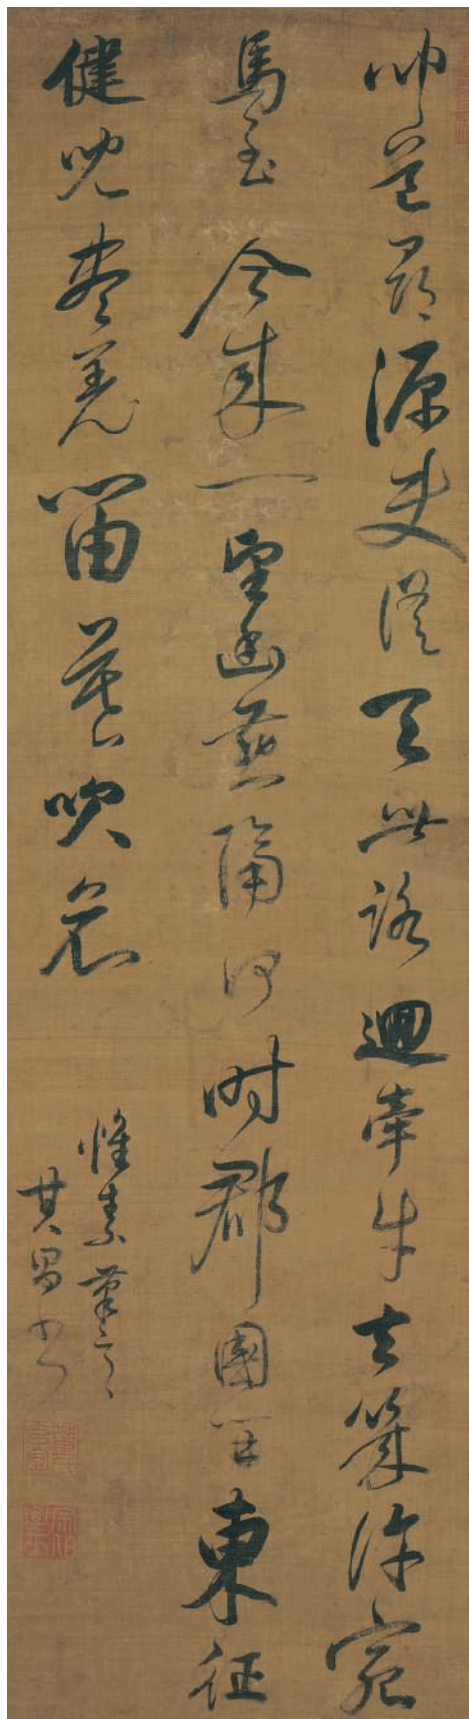 聞道尋源使從天此路迴牽牛去幾許宛
馬至今來一望幽燕隔何時郡國開東征
健兒盡羌笛暮吹哀
懷素筆意
其昌書